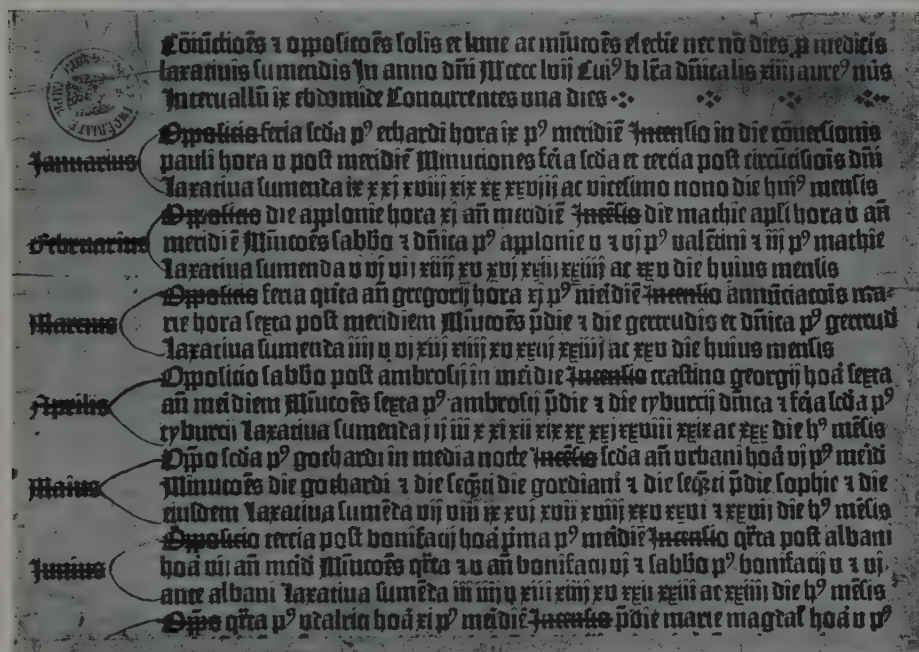 Cōiūctiōes ⁊ opposicōes solis et lune ac mīucōes electie nec nō dies p̱ medicis
laxatiuis sumendis In anno dn̄i M cccc lvij Cui⁹ b lr̄a dn̄icalis xiiij aure⁹ nūs
Interuallū ix ebdomide Concurrentes una dies
Januarius
Opposicio feria scd̄a p⁹ erhardi hora ix p⁹ meridiē Incensio in die cōuersionis
pauli hora v post meridiē Minuciones fēia scd̄a et tercia post circūcisiōis dn̄i
laxatiua sumenda ix x xj xviij xix xx xxviij ac vicesimo nono die hui⁹ mensis
Februarius
Opposicio die applonie hora xj an̄ meridiē Incēsio die mathie apl̄i hora v an̄
meridiē Mīucōes sabb̄o ⁊ dn̄ica p⁹ applonie v ⁊ vj p⁹ valētini ⁊ iij p⁹ mathie
laxatiua sumenda v vj vij xiiij xv xvj xxiij xxiiij ac xxv die huius mensis
Marcius
Opposicio feria qīta an̄ gregorij hora xj p⁹ meīdiē Incensio annūciacōis ma⸗
rie hora sexta post meridiem Mīucōes p̄die ⁊ die gertrudis et dn̄ica p⁹ gertrud
laxatiua sumenda iiij v vj xiij xiiij xv xxiij xxiiij ac xxv die huius mensis
Aprilis
Opposicio sabb̄o post ambrosij in meīdie Incensio crastino georgij hoā sexta
an̄ meīdiem Mīucōes sexta p⁹ ambrosij p̄die ⁊ die tyburcij dn̄ica ⁊ fēia scd̄a p⁹
tyburcii laxatiua sumenda j ij iii x xi xii xix xx xxj xxviii xxix ac xxx die h⁹ mēsis
Maius
Opp̄o scd̄a p⁹ gothardi in media nocte Incēsio scd̄a an̄ vrbani hoā vj p⁹ meīd
Minucōes die gothardi ⁊ die seq̄ti die gordiani ⁊ die seq̄ti p̄die sophie ⁊ die
eiusdem laxatiua sumēda vij viii ix xvj xvii xviij xxv xxvi ⁊ xxvij die h⁹ mēsis
Junius
Opposicio tercia post bonifacij hoā p̄ma p⁹ meīdiē Incensio qr̄ta post albani
hoā vij an̄ meīd Mīucōes qr̄ta ⁊ v an̄ bonifacij vj ⁊ sabb̄o p⁹ bonifacij v ⁊ vj
ante albani laxatiua sumēda iii iiij v xiii xiiij xv xxii xxiii ac xxiiij die h⁹ mēsis
Opp̄o qr̄ta p⁹ vdalrici hoā xi p⁹ meīdiē Incensio p̄die marie magdal̄ hoā v p⁹